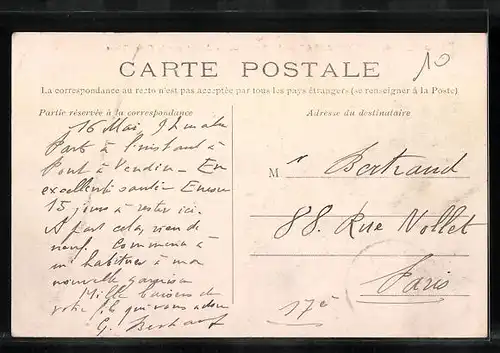 10
CARTE POSTALE
La correspondance au recto n'est pas acceptée par tous les pays étrangers (se renseigner à la Poste)
Partie réservée à la correspondance
Adresse du destinataire
16 Mai 9h matin
Pars à l'instant à
Pont à Vendin - En
excellente santé Encore
15 jours à rester ici.
A part cela, rien de
neuf. Commence à
m'habituer à ma
nouvelle garnison
Mille baisers de
votre fils qui vous adore
G. Bertrand
M r Bertrand
88. Rue Nollet
Paris
17e